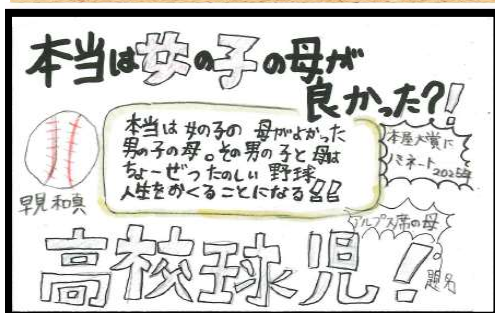 本当は女の子の母が
良かった?!
本当は女の子の母がよかった
男の子の母。その男の子と母は
ちょーぜつたのしい野球
人生をおくることになる!!
本屋大賞に
ノミネート2025年
早見和真
アルプス席の母
題名
高校球児!